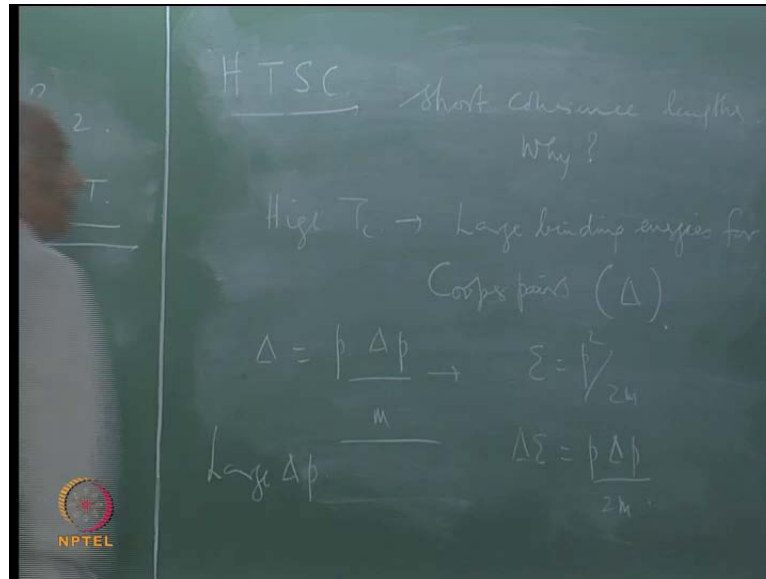 2.
T.
HTSC. Short coherence lengths.
Why?
High Tc → Large binding energies for
Cooper pairs (Δ).
Δ = p Δp / m → Ɛ = p²/2m
Large Δp ΔƐ = p Δp / 2m
NPTEL